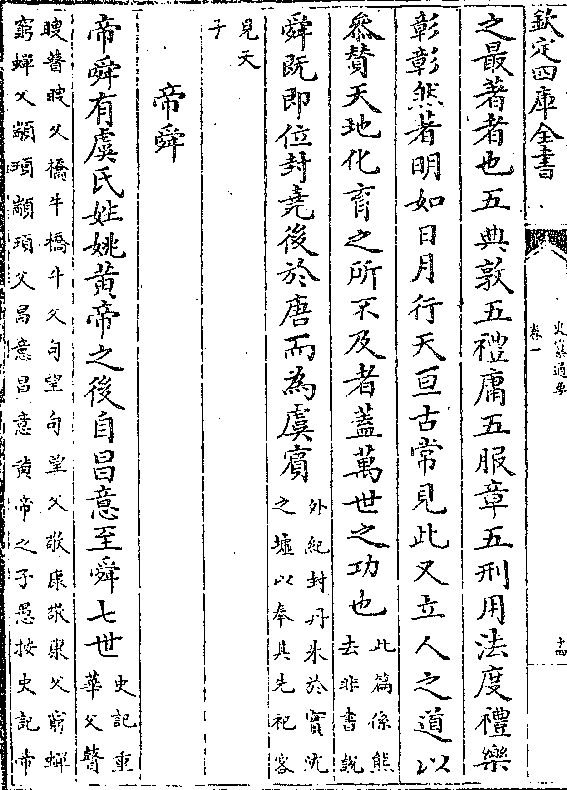 欽定四庫全書
史纂通要
卷一
十四
之最著者也五典敦五禮庸五服章五刑用法度禮樂
彰彰然著明如日月行天亘古常見此又立人之道以
叅贊天地化育之所不及者蓋萬世之功也
此篇係熊
去非書說
舜既即位封堯後於唐而為虞賔
外紀封丹朱於實沈
之墟以奉其先祀客
見天
子
帝舜
帝舜有虞氏姓姚黃帝之後自昌意至舜七世
史記重
華父瞽
瞍瞽瞍父橋牛橋牛父句望句望父敬康敬康父窮蟬
窮蟬父顓頊顓頊父昌意昌意黄帝之子愚按史記帝